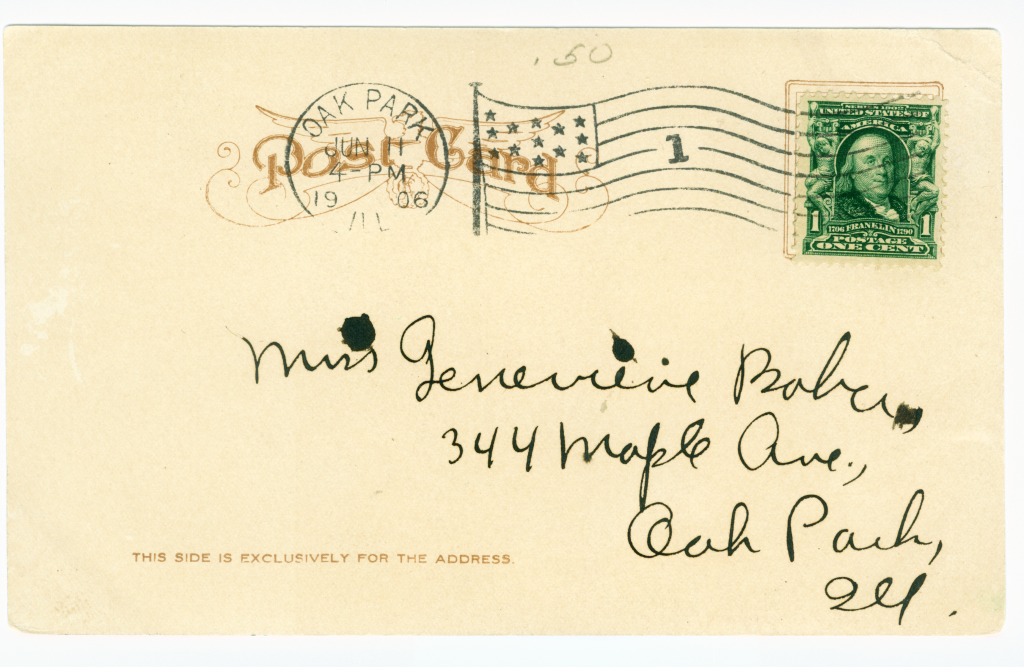 .50
OAK PARK
JUN 11
4-PM
19 06
ILL
Post Card
1
SERIES 1902
UNITED STATES OF
AMERICA
1 1
1706 FRANKLIN 1790
POSTAGE
ONE CENT
Miss Genevieve
344 Maple Ave.,
Oak Park,
Ill.
THIS SIDE IS EXCLUSIVELY FOR THE ADDRESS.